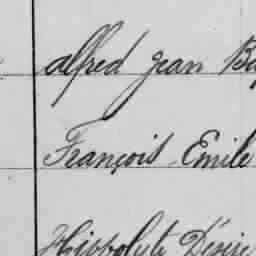 alfred Jean Ba
François Emile
Hippolyte Désiré